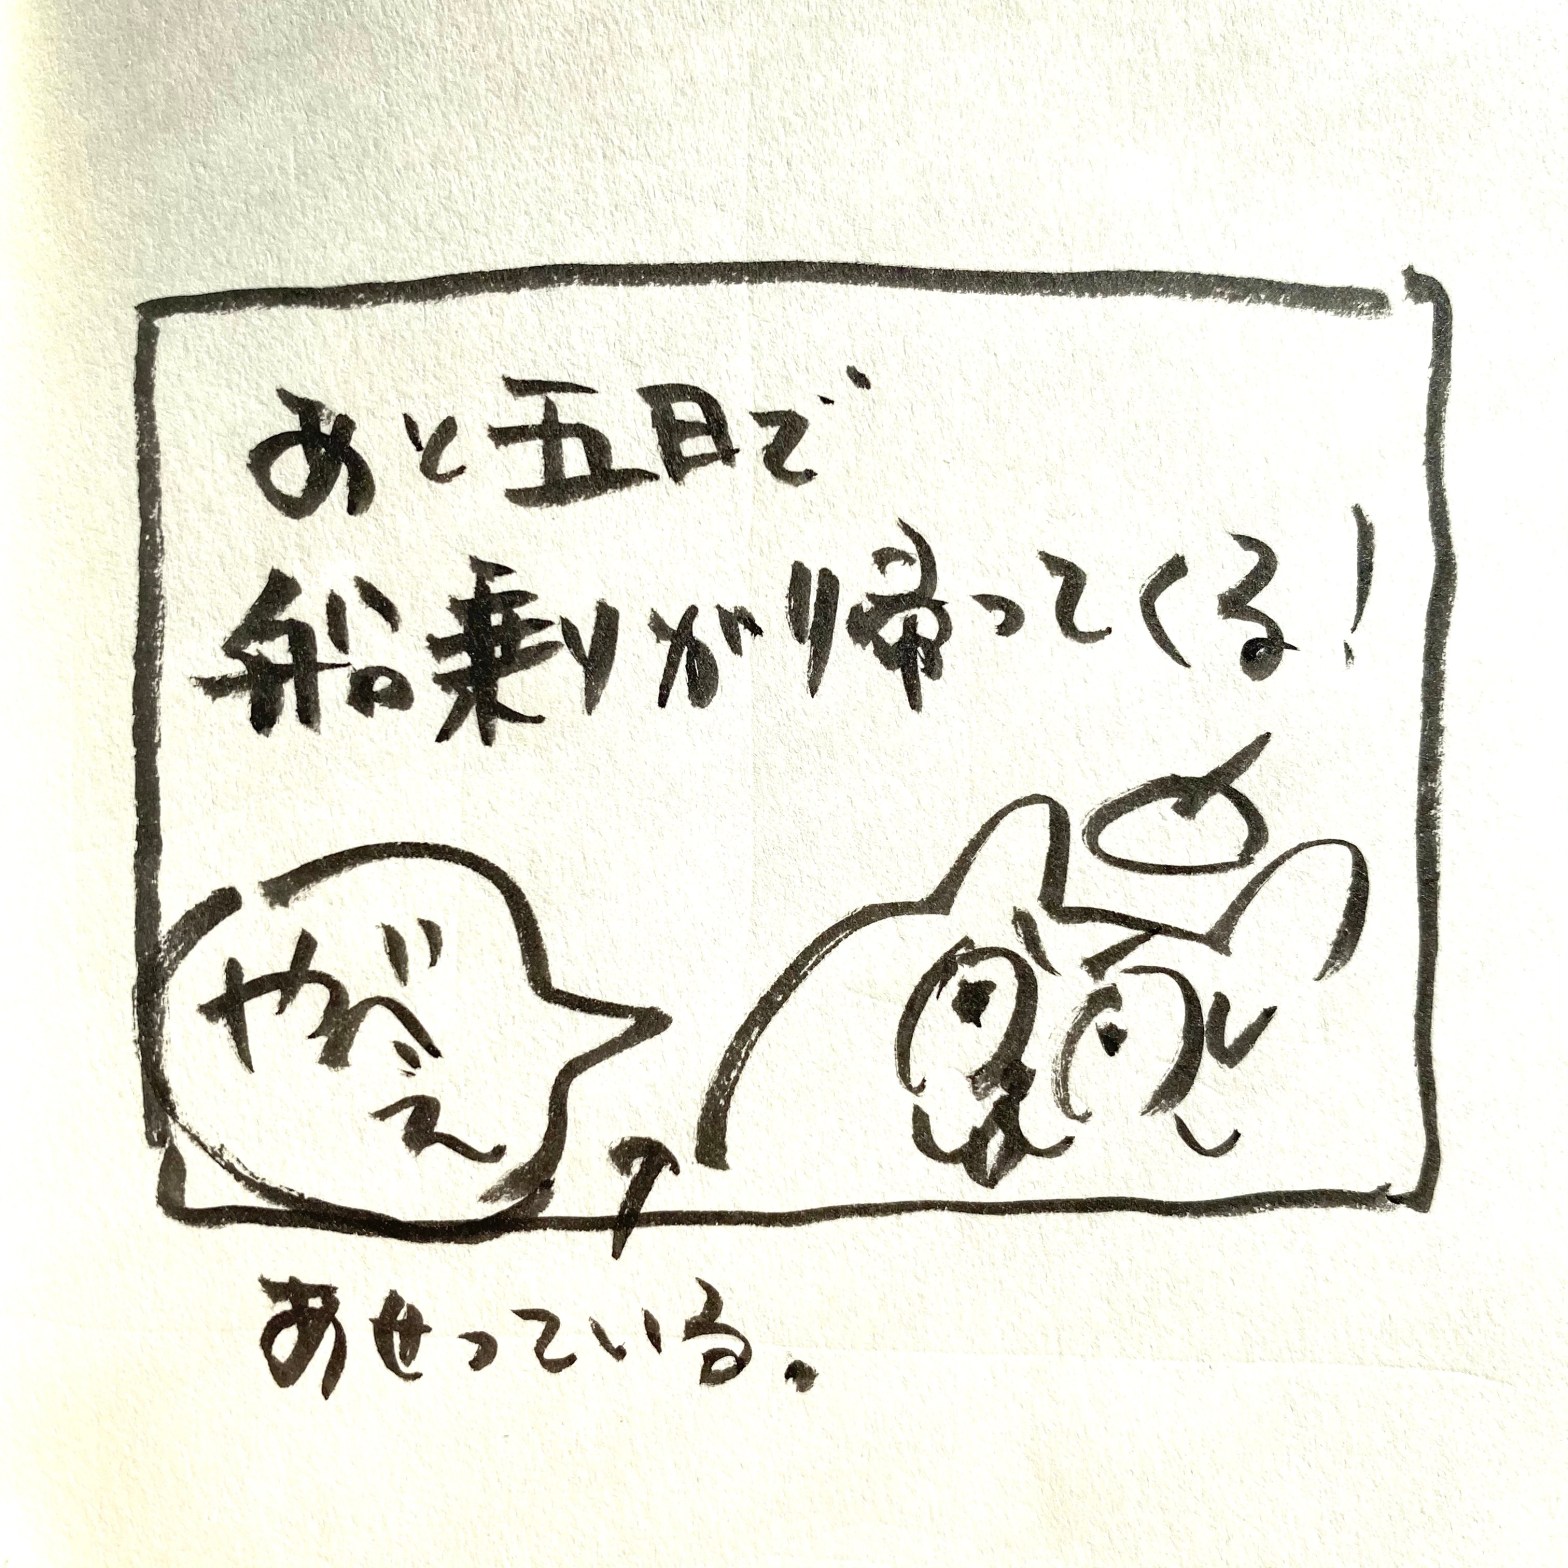 あと五日で
船乗りが帰ってくる!
やべぇ
あせっている.